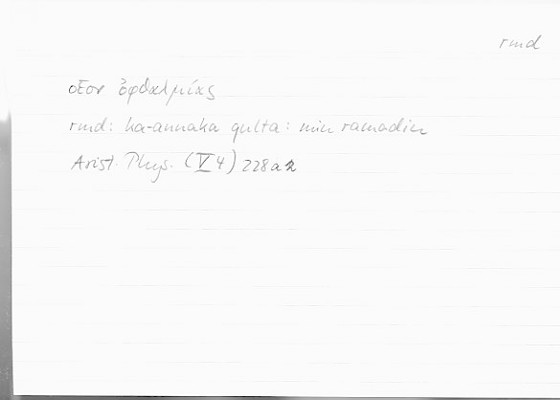 rmd
οἷον ὀφθαλμίας
rmd: ka-annaka qulta: min ramadin
Arist. Phys. (V 4) 228a2